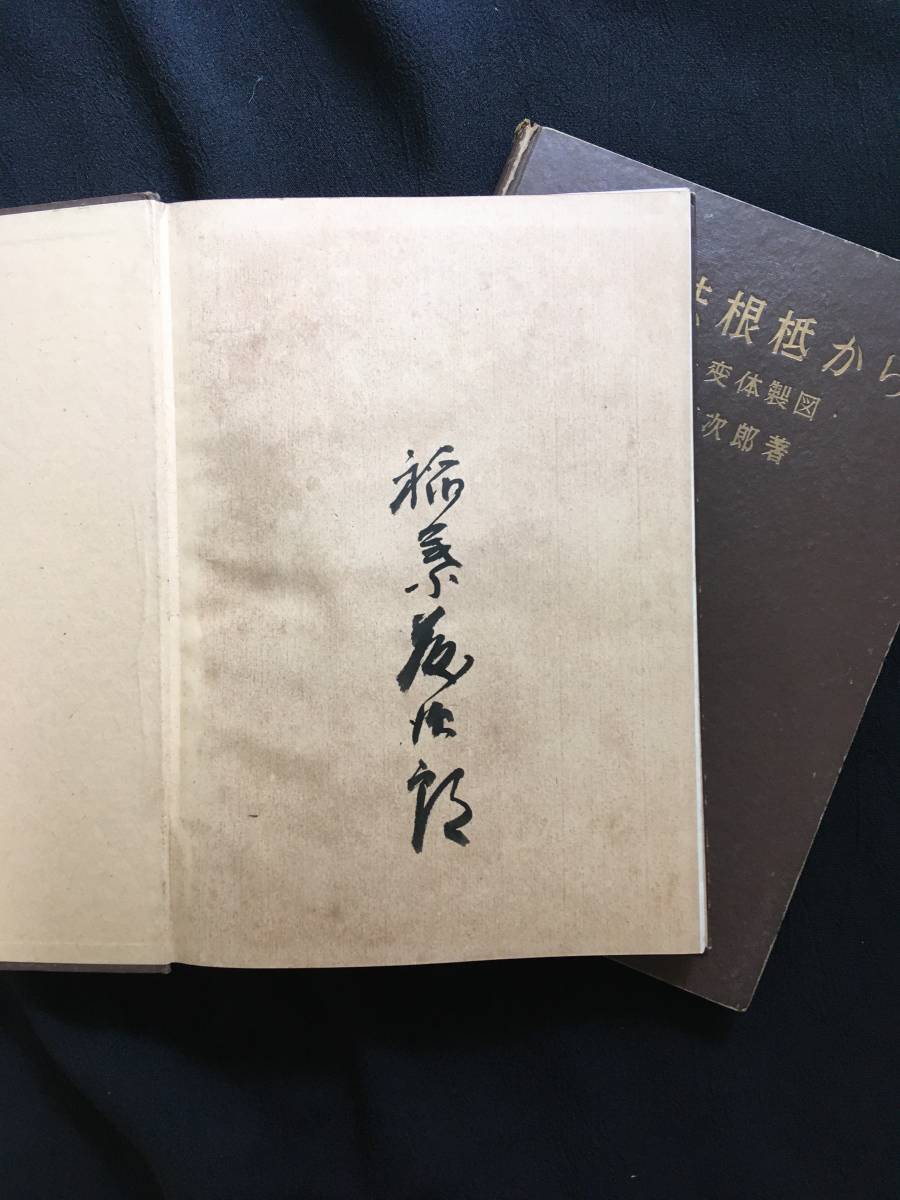 稲葉 次郎
根柢から
変体製図
次郎著